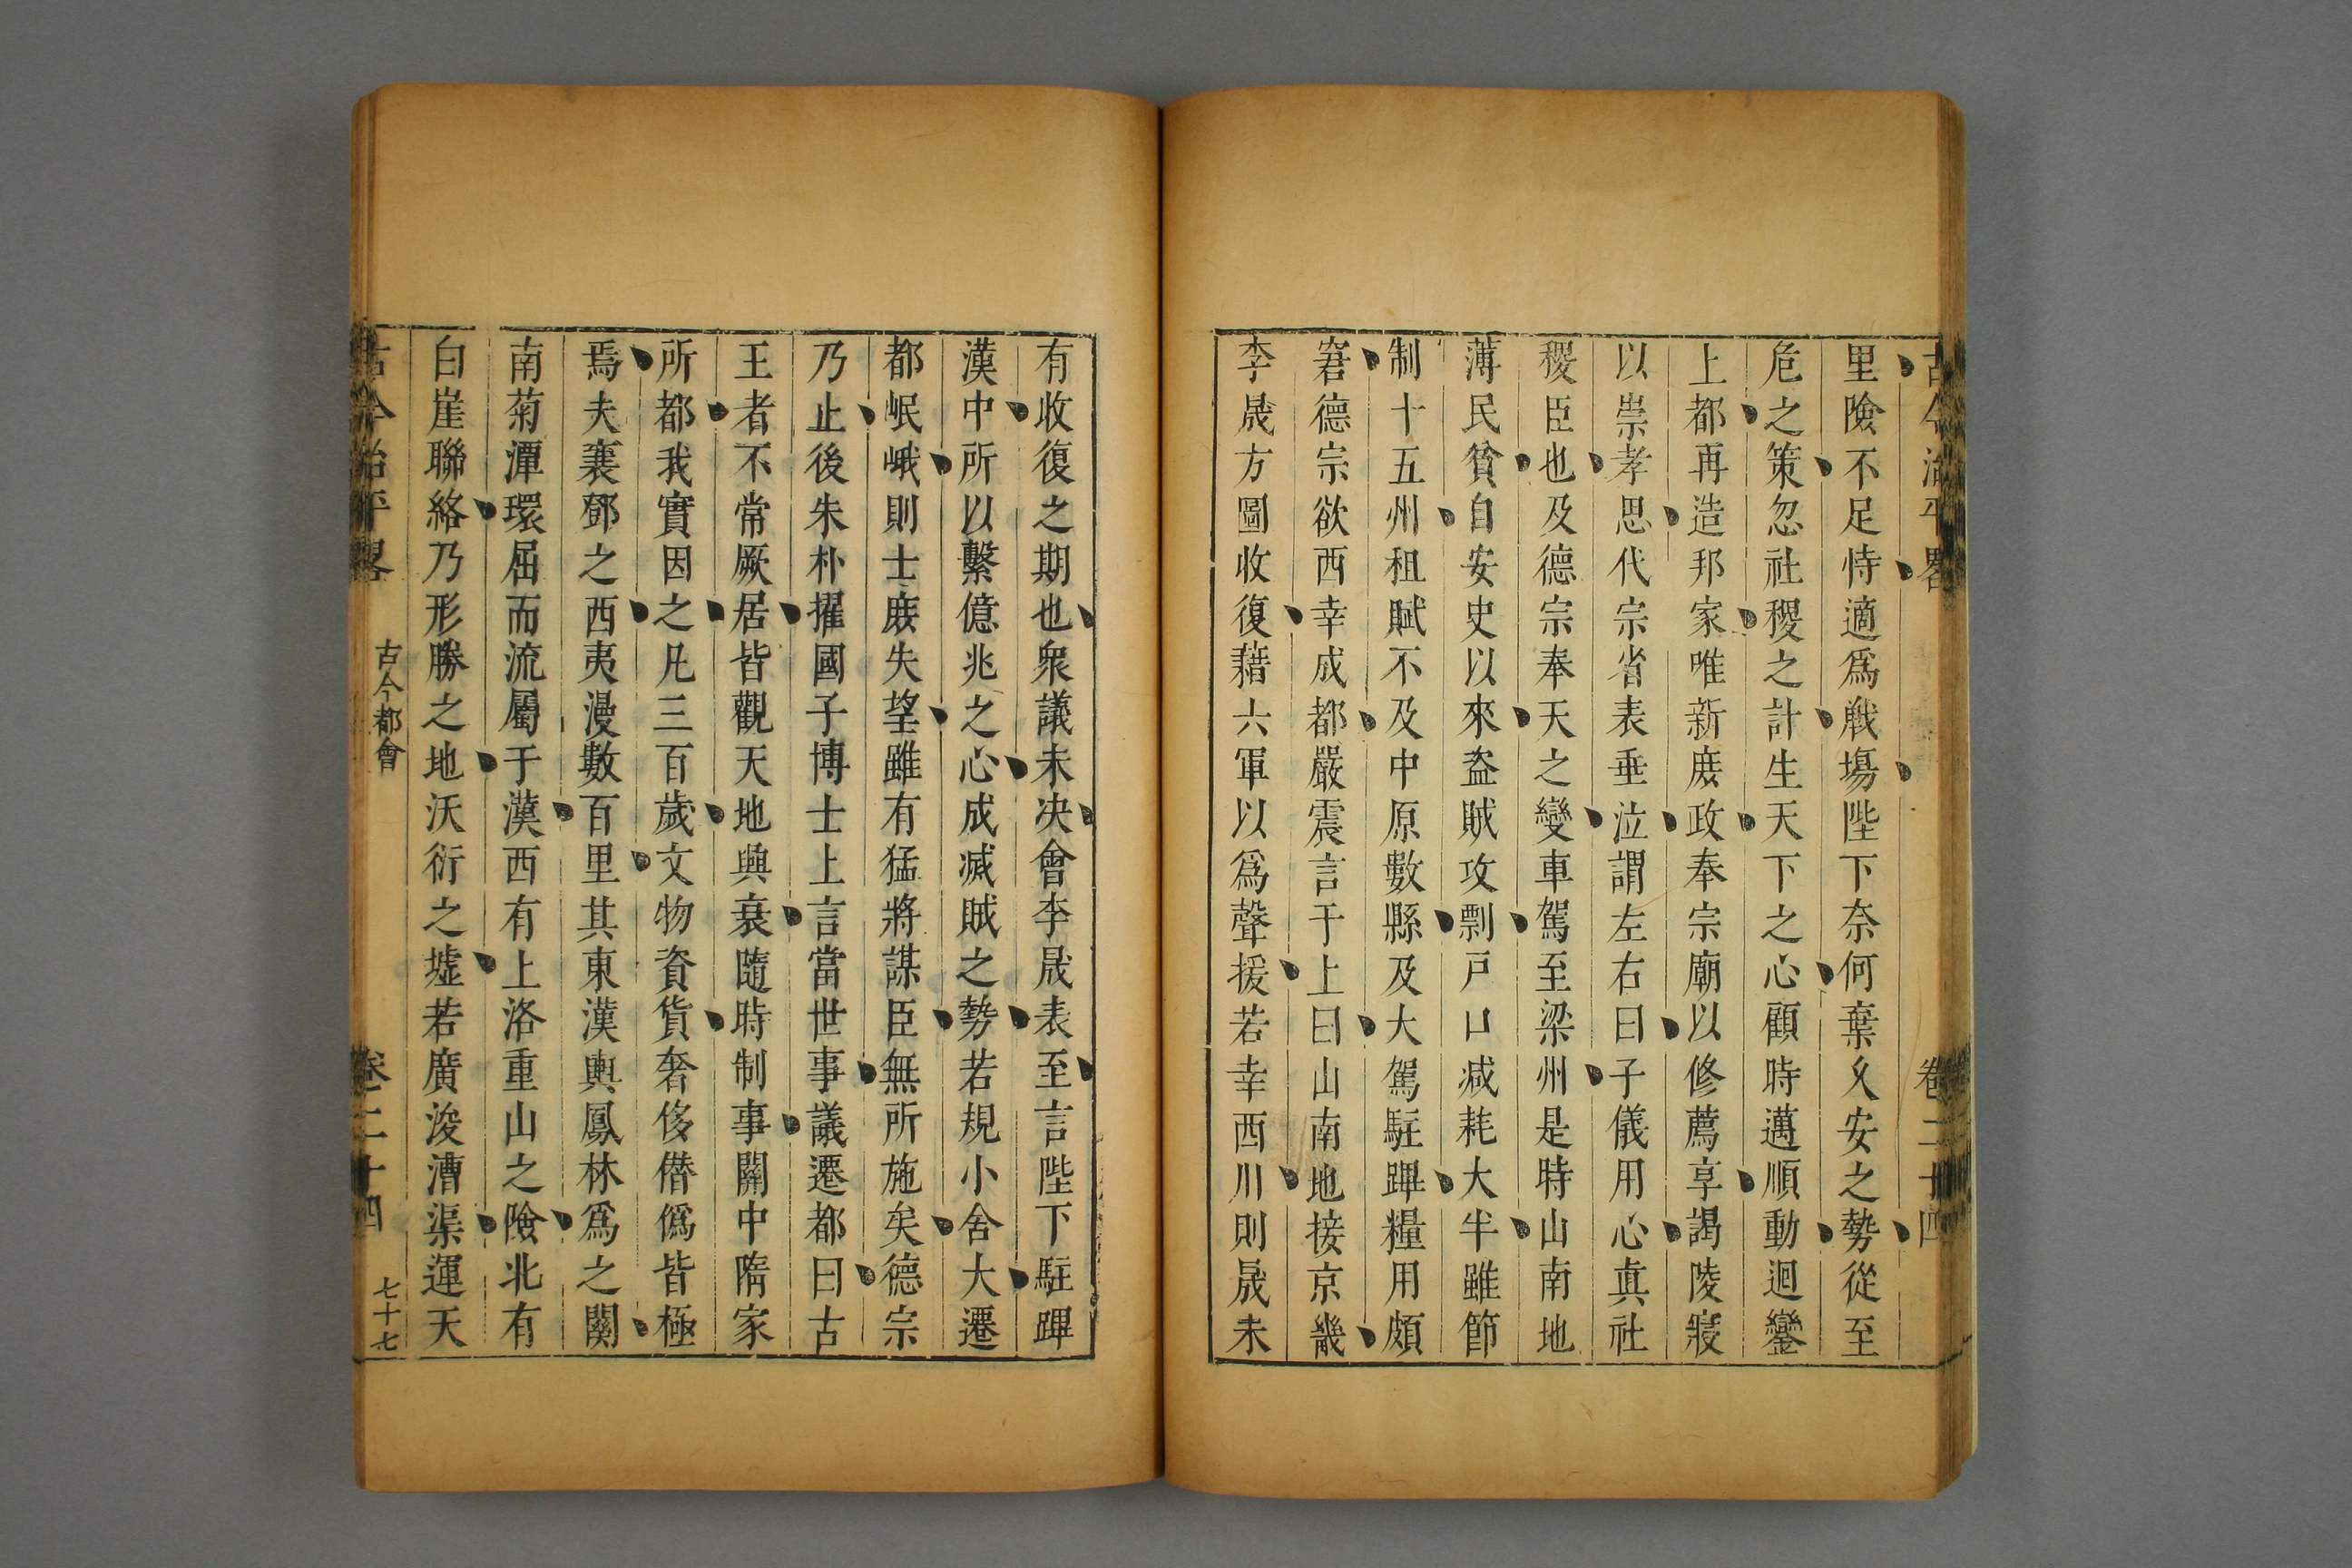 古今治平畧 卷二十四
里險不足恃適爲戰塲陛下奈何棄乆安之勢從至
危之策忽社稷之計生天下之心顧時邁順動迴鑾
上都再造邦家唯新庻政奉宗廟以修薦享謁陵寢
以崇孝思代宗省表垂泣謂左右曰子儀用心眞社
稷臣也及德宗奉天之變車駕至梁州是時山南地
薄民貧自安史以來盗賊攻剽戸口減耗大半雖節
制十五州租賦不及中原數縣及大駕駐蹕糧用頗
窘德宗欲西幸成都嚴震言于上曰山南地接京畿
李晟方圖收復藉六軍以爲聲援若幸西川則晟未
有收復之期也衆議未决會李晟表至言陛下駐蹕
漢中所以繫億兆之心成滅賊之勢若規小舍大遷
都岷峨則士庻失望雖有猛將謀臣無所施矣德宗
乃止後朱朴擢國子博士上言當世事議遷都曰古
王者不常厥居皆觀天地興衰隨時制事關中隋家
所都我實因之凡三百歲文物資貨奢侈僣僞皆極
焉夫襄鄧之西夷漫數百里其東漢輿鳳林爲之關
南菊潭環屈而流屬于漢西有上洛重山之險北有
白崖聯絡乃形勝之地沃衍之墟若廣浚漕渠運天
古今治平畧 古今都會 卷二十四 七十七